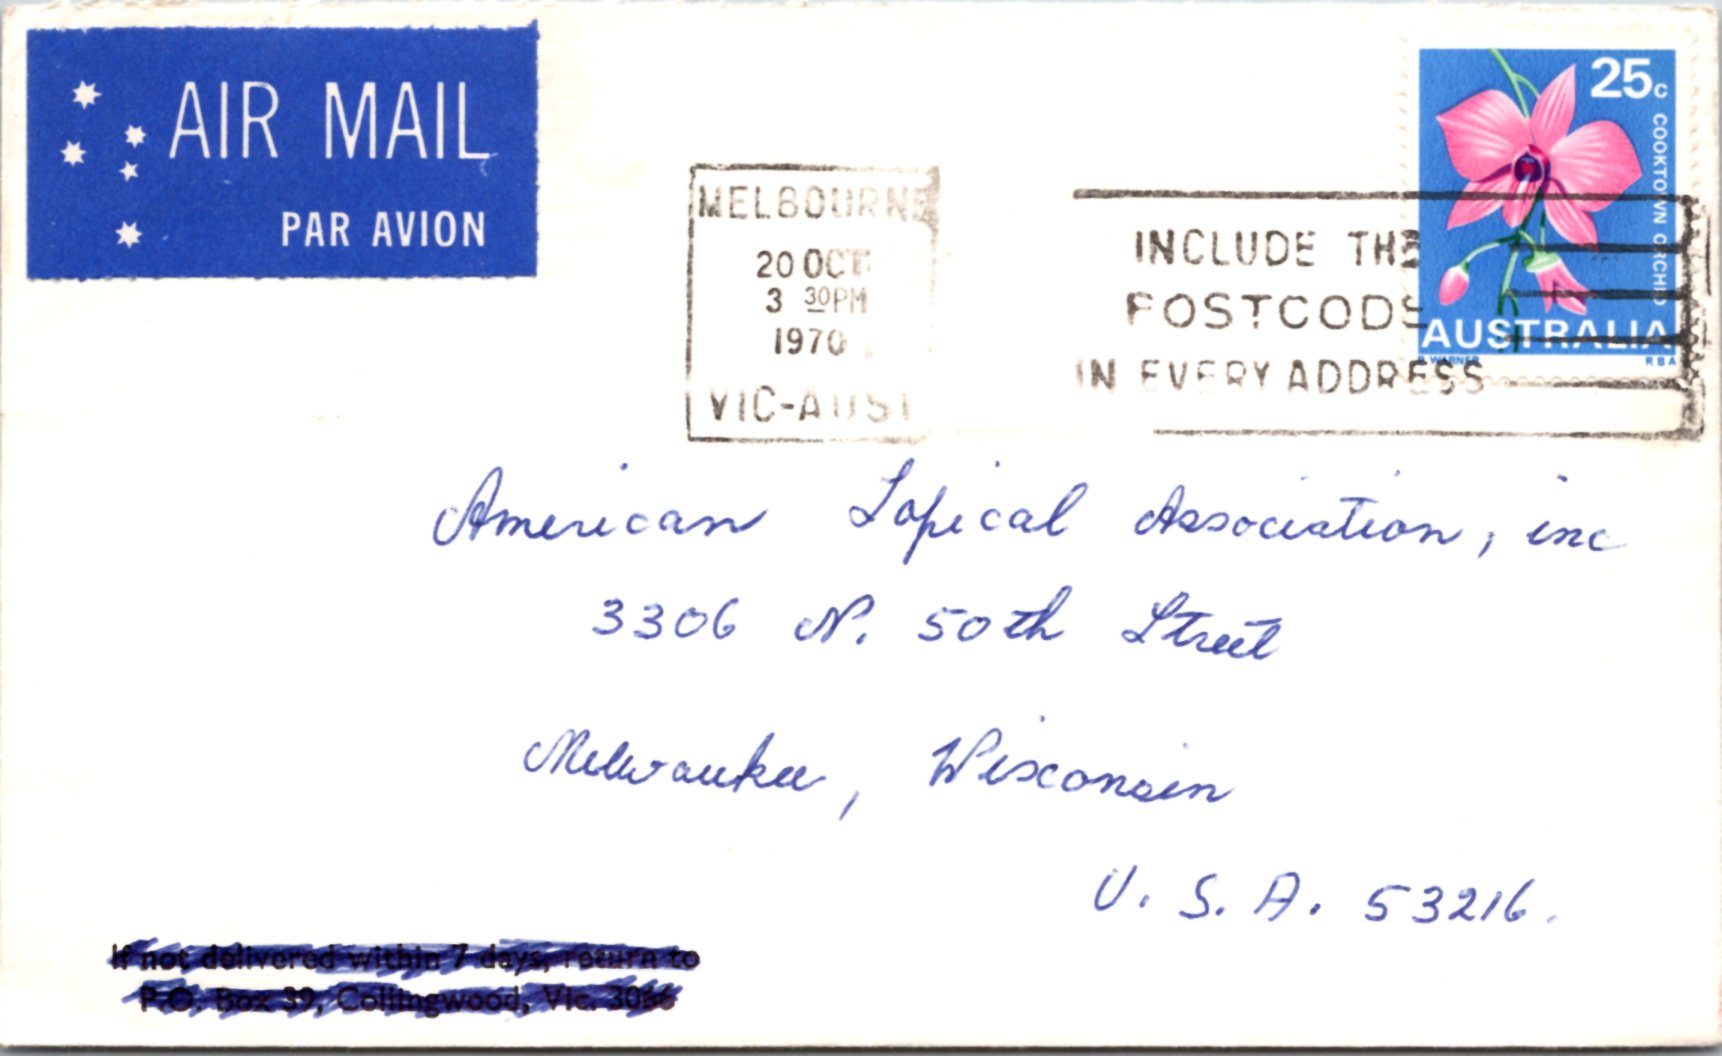 AIR MAIL
PAR AVION
MELBOURNE
20 OCT
3 30PM
1970
VIC-AUST
INCLUDE THE
POSTCODE
IN EVERY ADDRESS
25c
COOKTOWN ORCHID
AUSTRALIA
P. WARNER
RBA
American Topical Association, inc
3306 N. 50th Street
Milwaukee, Wisconsin
U. S. A. 53216.
If not delivered within 7 days, return to
P.O. Box 39, Collingwood, Vic. 3066